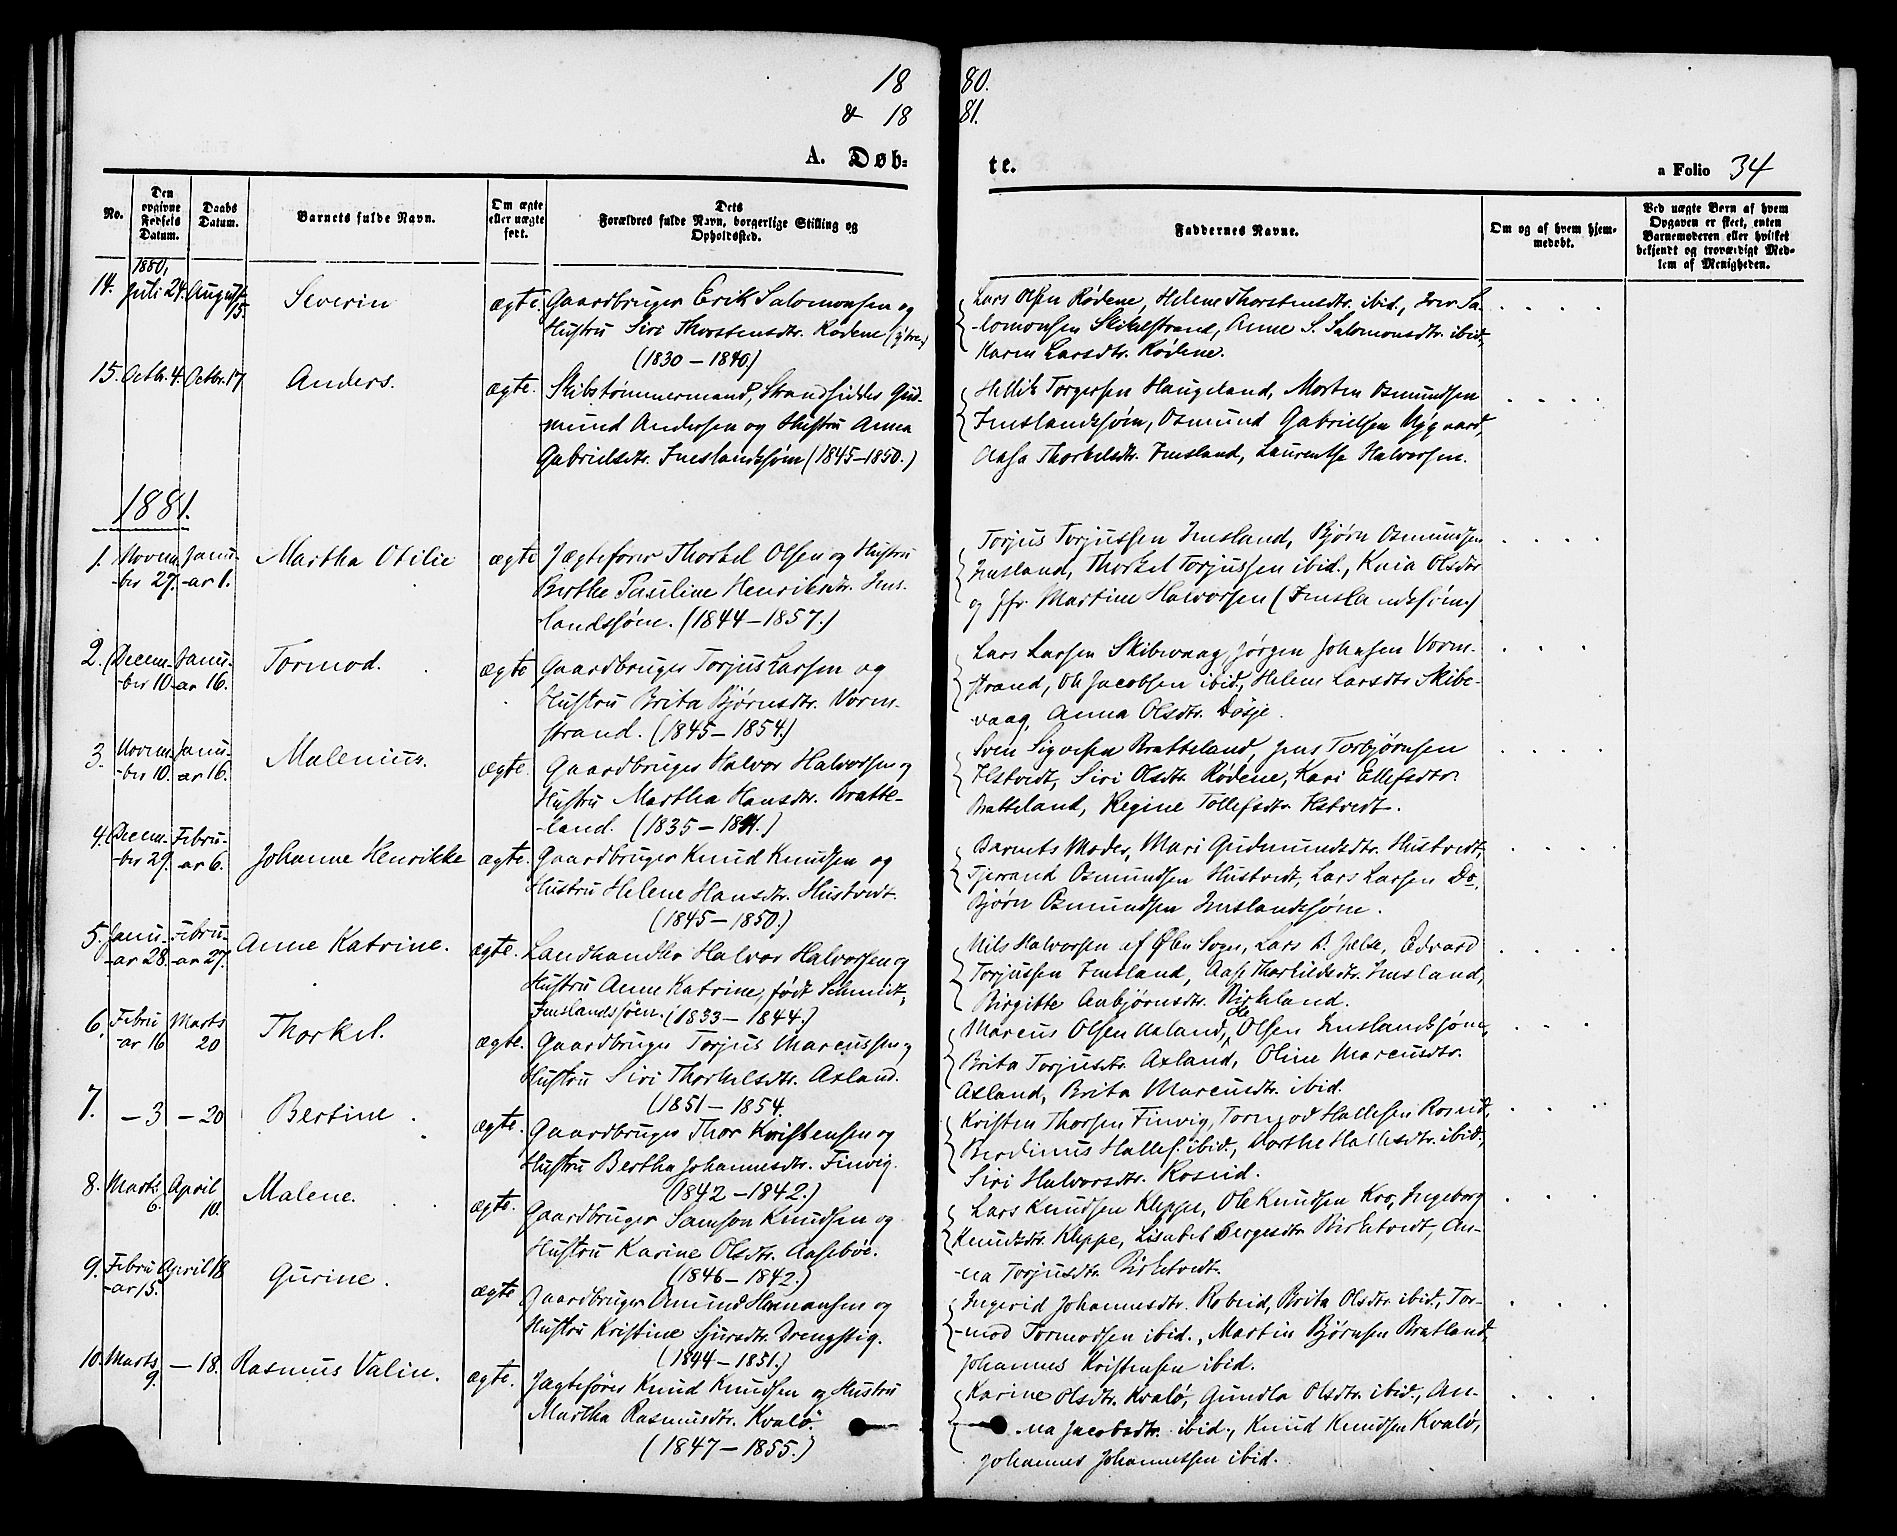 18 80.
& 18 81.
A. Døb- te.
a Folio 34
No.
Den opgivne Fødsels Datum.
Daabs Datum.
Barnets fulde Navn.
Om ægte eller uægte født.
Dets Forældres fulde Navn, borgerlige Stilling og Opholdssted.
Faddernes Navne.
Om og af hvem hjemmedøbt.
Ved uægte Børn af hvem Opgaven er skeet, enten Barnemoderen eller hvilket bekjendt og troværdigt Medlem af Menigheden.
1880,
14. Juli 24. August 15. Severin ægte. Gaardbruger Erik Salomonsen og
Hustru Siri Thorstensdtr. Rødene (ytre)
(1830 – 1840)
Lars Olsen Rødene, Helene Thorstensdtr. ibid., Iver Sa-
-lomonsen Skikelstrand, Anne S. Salomonsdtr. ibid,
Karen Larsdtr. Rødene.
15. Octbr. 4. Octbr. 17 Anders. ægte. Skibstømmermand, Strandsidder Gud-
mund Andersen og Hustru Anna
Gabrielsdtr. Imslandssøen (1845–1850.)
Hellik Torgersen Haugeland, Morten Osmundsen
Imslandssøen, Osmund Gabrielsen Nygaard,
Aasa Thorkelsdtr. Imsland, Laurentse Halvorsen.
1881.
1. Novem-
-ber 27. Janu-
-ar 1. Martha Otilie ægte Jægtefører Thorkel Olsen og Hustru
Berthe Pauline Henriksdtr. Ims-
landssøen. (1844–1857.)
Torjus Torjussen Imsland, Bjørn Osmundsen
Imsland, Thorkel Torjussen ibid., Kaia Olsdtr
og Jfr. Martine Halvorsen (Imslandssøen.)
2. Decem-
-ber 10. Janu-
-ar 16. Tormod. ægte Gaardbruger Torjus Larsen og
Hustru Brita Bjørnsdtr. Vorm-
strand. (1845–1854.)
Lars Larsen Skibevaag, Jørgen Johnsen Vorm-
strand, Ole Jacobsen ibid., Helene Larsdtr Skibe-
vaag, Anna Olsdtr. Døsje.
3. Novem-
-ber 10. Janu-
-ar 16. Malenius. ægte. Gaardbruger Halvor Halvorsen og
Hustru Martha Hansdtr. Bratte-
-land. (1835–1841.)
Sven Sigvesen Bratteland, Jens Torbjørnsen
Ilstvedt, Siri Olsdtr. Rødene, Kari Ellefsdtr.
Bratteland, Regine Tollefsdtr. Ilstvedt.
4. Decem-
-ber 29. Febru-
-ar 6. Johanne Henrikke ægte. Gaardbruger Knud Knudsen og
Hustru Helene Hansdtr. Hustvedt.
(1845–1850.)
Barnets Moder, Mari Gudmundsdtr. Hustvedt,
Tjerand Osmundsen Hustvedt, Lars Larsen Do,
Bjørn Osmundsen Imslandssøen.
5. Janu-
-ar 28. Febru-
-ar 27. Anne Katrine. ægte. Landhandler Halvor Halvorsen og
Hustru Anne Katrine, født Schmidt,
Imslandssøen. (1833–1844.)
Nils Halvorsen af Ølen Sogn, Lars B. Jelsa, Edvard
Torjussen Imsland, Aase Thorkildsdtr. Imsland,
Birgitte Asbjørnsdtr. Birkeland.
6. Febru
-ar 16 Marts
20 Thorkel. ægte. Gaardbruger Torjus Marcussen og
Hustru Siri Thorkelsdtr. Axland.
(1851–1854.
Marcus Olsen Axland, Ole Olsen Imslandssøen,
Brita Torjusdtr. Axland, Oline Marcusdtr.
Axland, Brita Marcusdtr. ibid.
7. – 3 – 20 Bertine. ægte. Gaardbruger Thor Kristensen og
Hustru Bertha Johannesdtr. Finvig.
(1842–1842.)
Kristen Thorsen Finvig, Tormod Hallesen Rosud,
Berdinus Hallef. ibid., Dorthe Hallesdtr. ibid,
Siri Halvorsdtr. Rosud.
8. Marts
6. April
10. Malene. ægte. Gaardbruger Samson Knudsen og
Hustru Karine Olsdtr. Aasebøe.
(1846–1842.)
Lars Knudsen Kleppe, Ole Knudsen Kro, Ingeborg
Knudsdtr. Kleppe, Lisabet Bergesdtr. Birketvedt, An-
-na Torjusdtr. Birketvedt.
9. Febru
-ar 15. April 18 Gurine. ægte Gaardbruger Omund Hermansen og
Hustru Kristine Sjursdtr. Drengstig.
(1844–1851.)
Ingerid Johannesdtr. Robrid, Brita Olsdtr. ibid., Tor-
-mod Tormodsen ibid., Martin Bjørnsen Bratland
Johannes Kristensen ibid.
10. Marts
9. – 18. Rasmus Valin. ægte. Jægtefører Knud Knudsen og Hustru
Martha Rasmusdtr. Kvalø.
(1847–1855.)
Karine Olsdtr. Kvalø, Gundla Olsdtr. ibid., An-
-na Jacobsdtr. ibid., Knud Knudsen Kvalø,
Johannes Johannessen ibid.